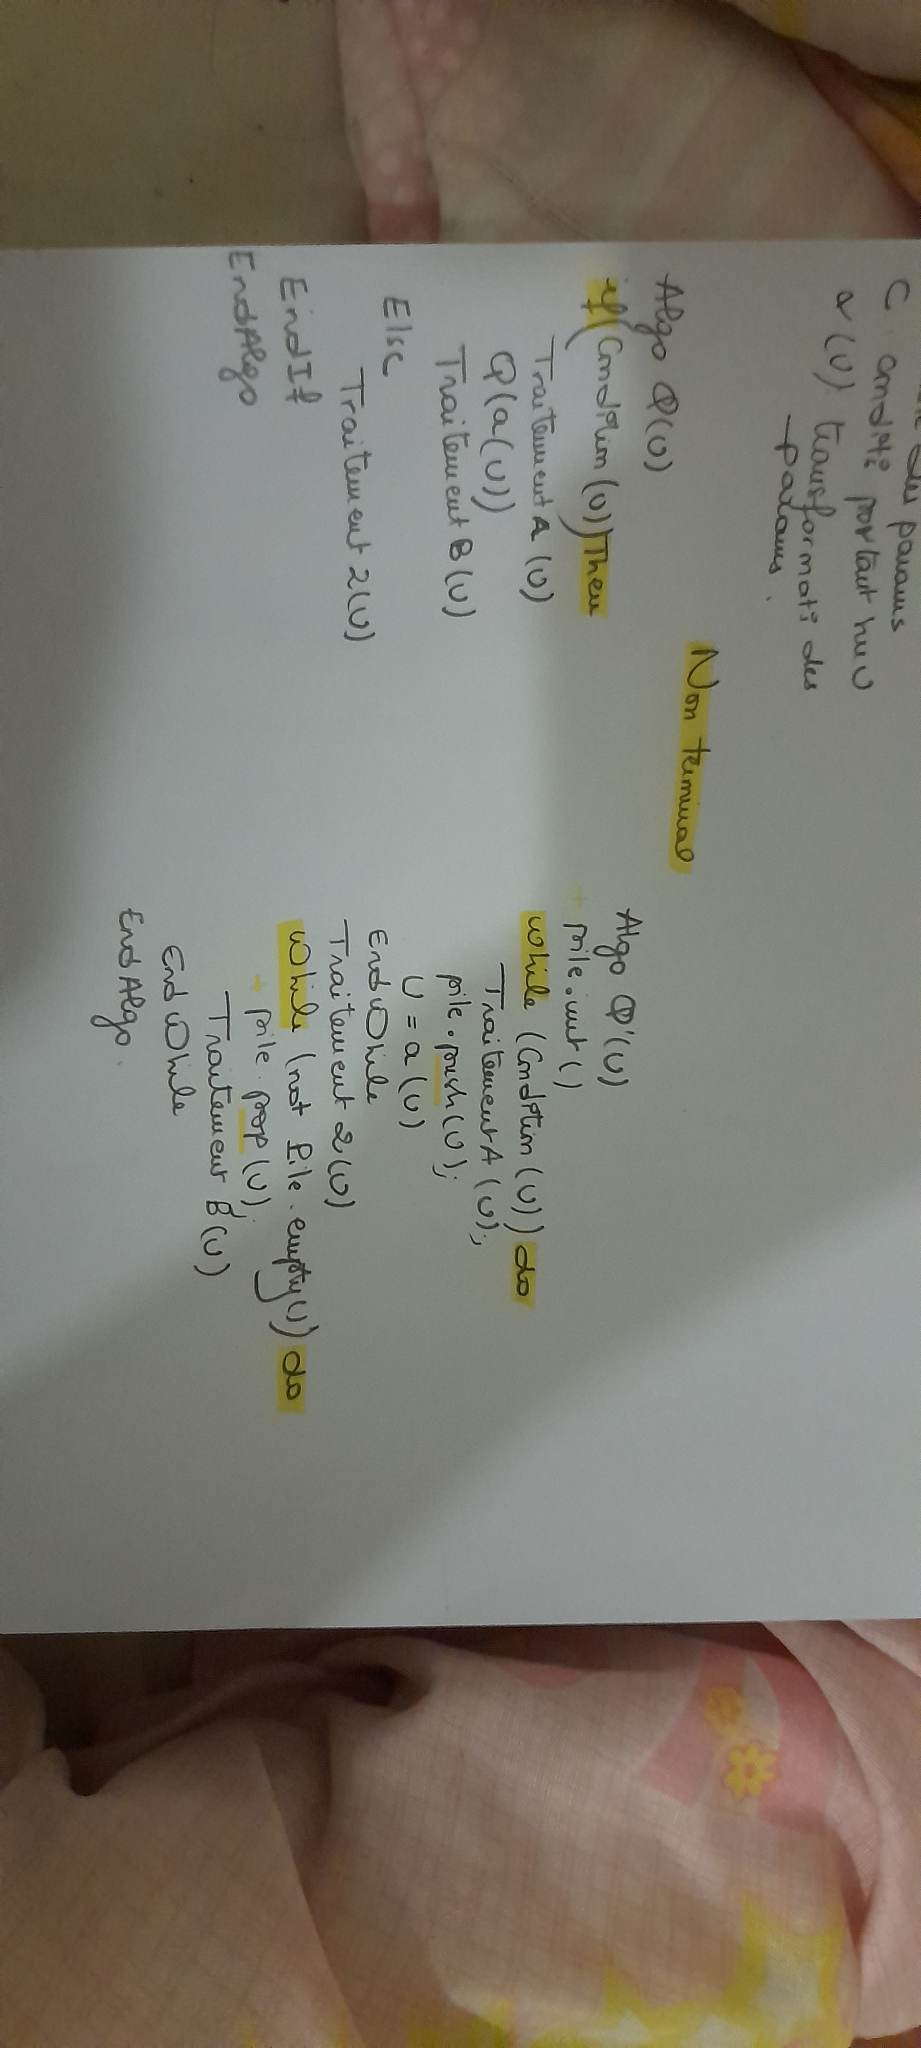 des params
C conditi° portant sur U
α (U) transformati° des
params.
Non terminal
Algo Q(U)
if (Condition (U)) Then
Traitement A (U)
Q(a(U))
Traitement B (U)
Else
Traitement 2(U)
EndIf
EndAlgo
Algo Q'(U)
pile.init ()
while (Condition (U)) do
Traitement A (U);
pile.push(U);
U = a (U)
EndWhile
Traitement 2 (U)
While (not Pile.empty()) do
pile.pop (U);
Traitement B (U)
End While
End Algo.